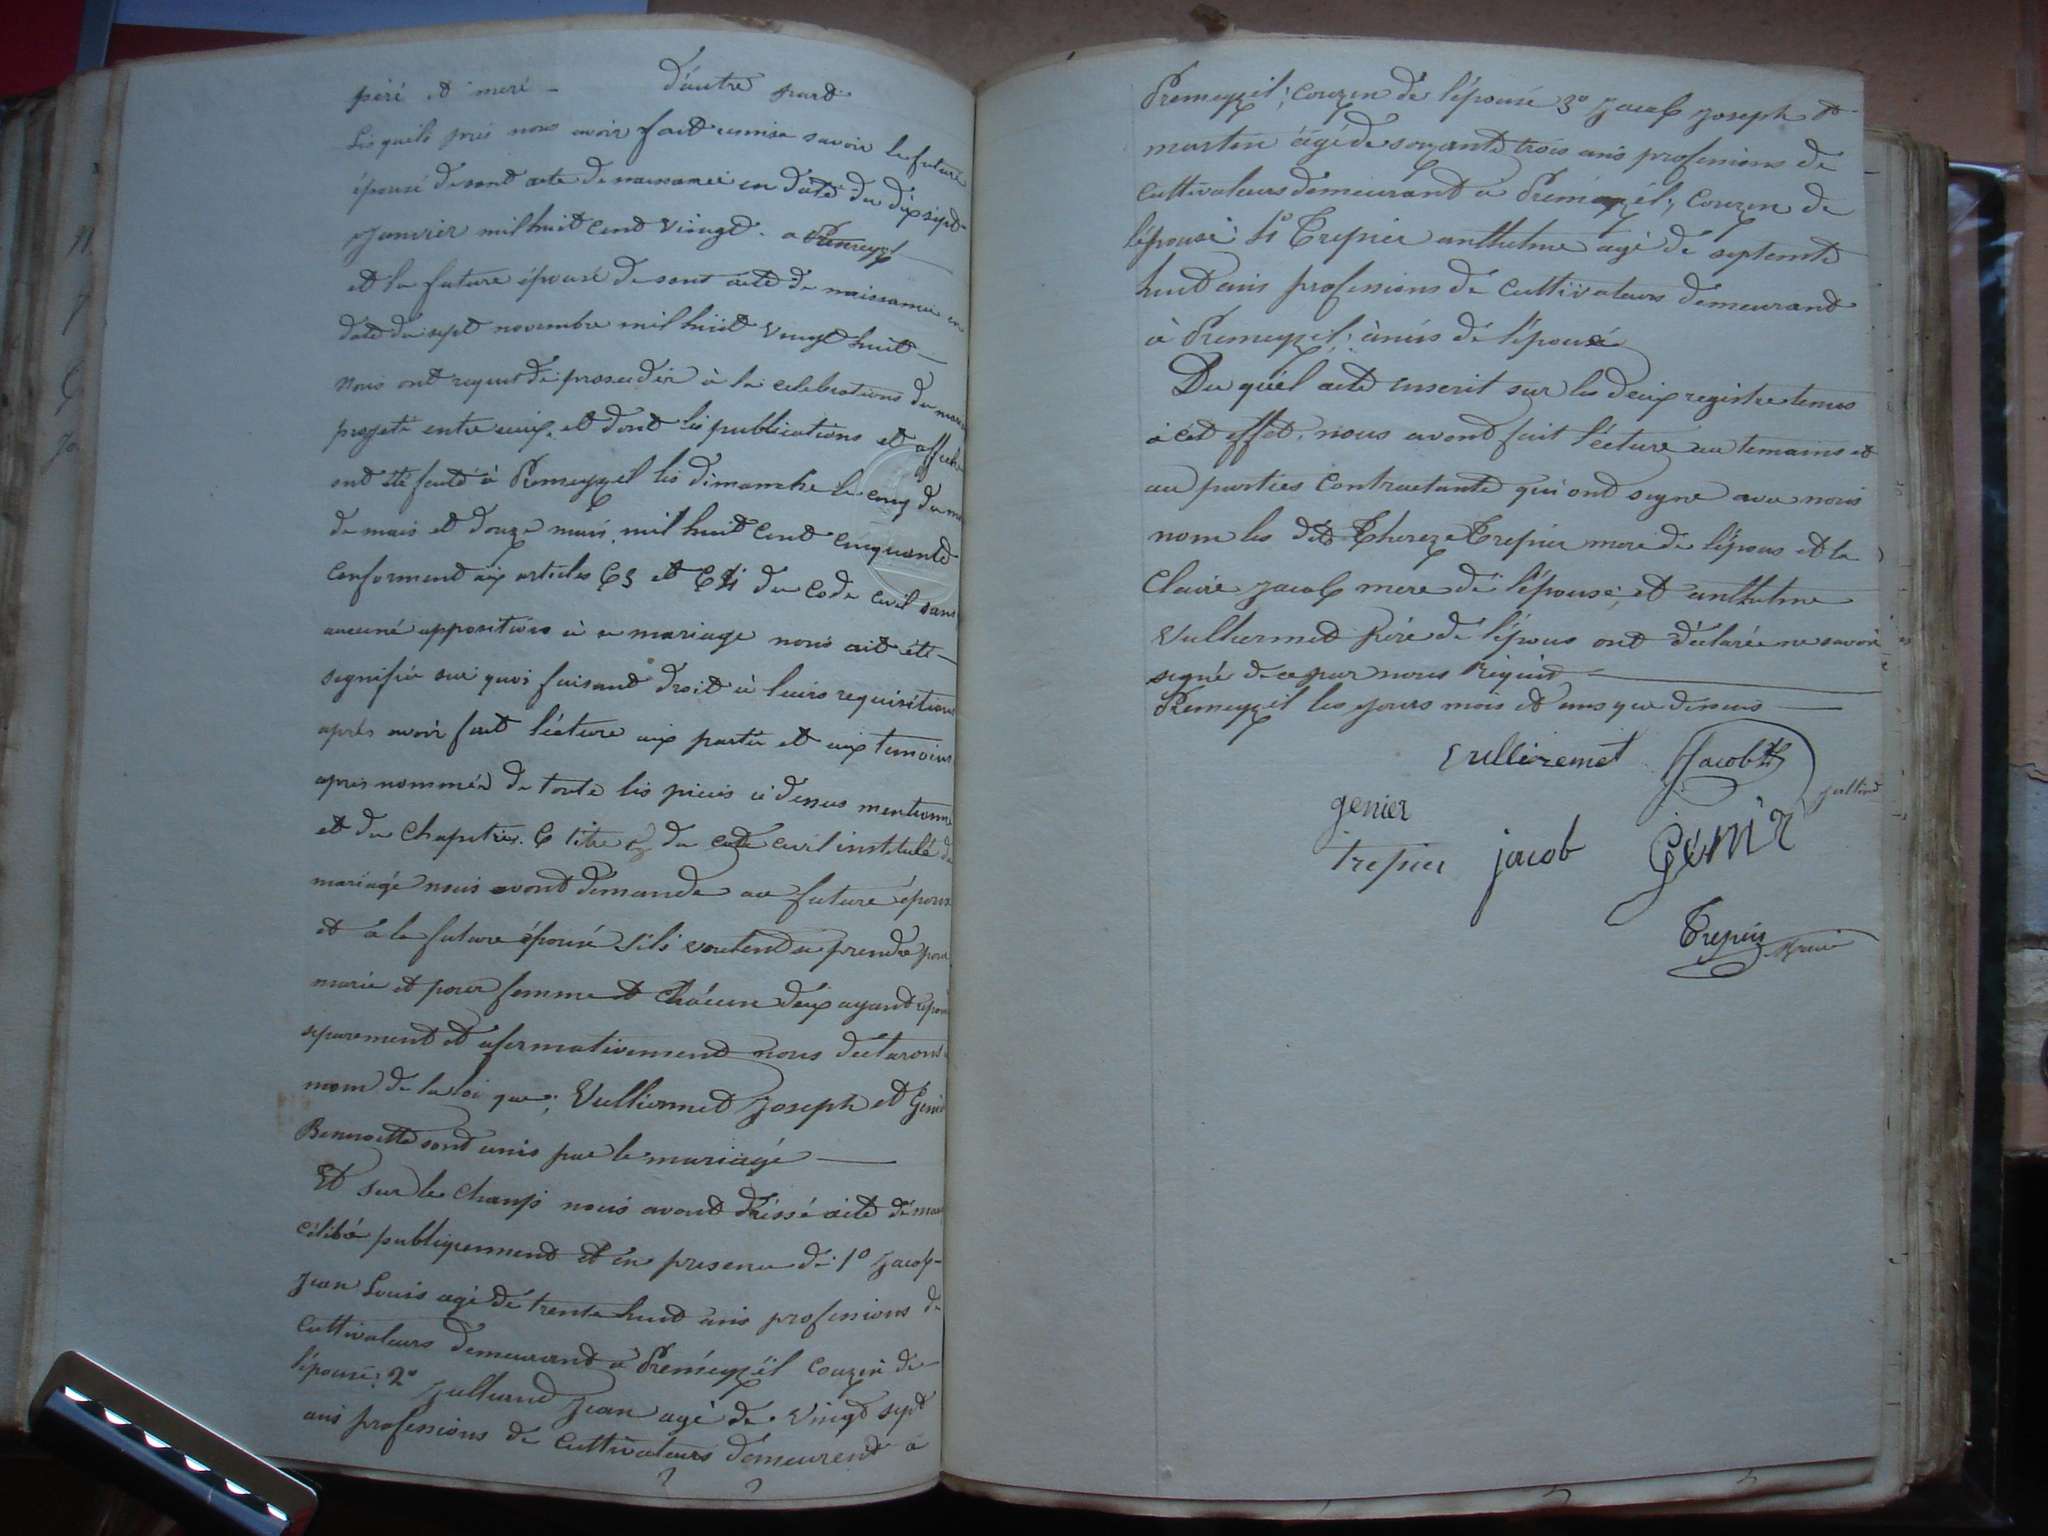 peré et meré — d'autre part
Lesquels prés nous avoir fait remise savoir le future
épousé de sont acte de naissance en date du dix sept
janvier mil huit cent vingt. a Premeyzel
et la future épouse de sont acte de naissance en
date du sept novembre mil huit vingt huit
nous ont requis de proseder à la celebrations du
projeté entre euix, et dont les publications et affiche
ont été faite à Premeyzel les dimanche le cinq du
de mais et douze mars, mil huit cent cinquante
conforment aux articles 63 et 64 du code civil sans
aucuné oppositions à ce mariage nous ait été
signifié sur quoi faisant droit à leurs requisitions
aprés avoir fait lécture aux partie et aux temoins
apres nommés de toute les piéces ci dessus mentionne
et du chapitre. 6 titre du code civil institulé du
mariagé nous avont demande au future époux
et à la future épouse s'ils veulend se prendre pour
marie et pour femme et chácun d'eux ayant repon
séparement et afirmativement nous declarons
nom de la loi que; Vulliermet Joseph et Genie
Benoitte sont unis par le mariagé
Et sur le champ nous avont dréssé acte dé ma
célibré publiquement et en presence de 1° Jacob
Jean Louis agé de trente huit ans profesions de
cultivateurs demeurand à Preméyzel couzin de
l'épousé: 2° Julliand Jean agé de vingt sept
ans profesions de cultivateurs demeurend à
Premeyzel; couzin de l'épouse 3° Jacob Joseph et
martin agé de soxante trois ans profesions de
cultivateurs demeurand a Premeyzél; couzen de
l'épouse 4° Trepier anthelme agé dé septente
huit ans profesions de cultivateurs demeurand
à Premeyzel; àmis de l'épouse
Du quél acte inscrit sur les deux registre tenus
à cet effet, nous avont fait lécture au temoins et
au parties contractante qui ont signe avec nous
nom les dit Thereze Trepier mere de l'épous et la
Claire Jacob mere de l'épouse, et anthelme
Vulliermet Pére de l'épous ont déclarée ne savoir
signé de ce par nous Réquis
Premeyzel les jours mois et ans que dessus
Vulliremet Jacob
genier Julliand
trepier jacob Génir
Trepier maire